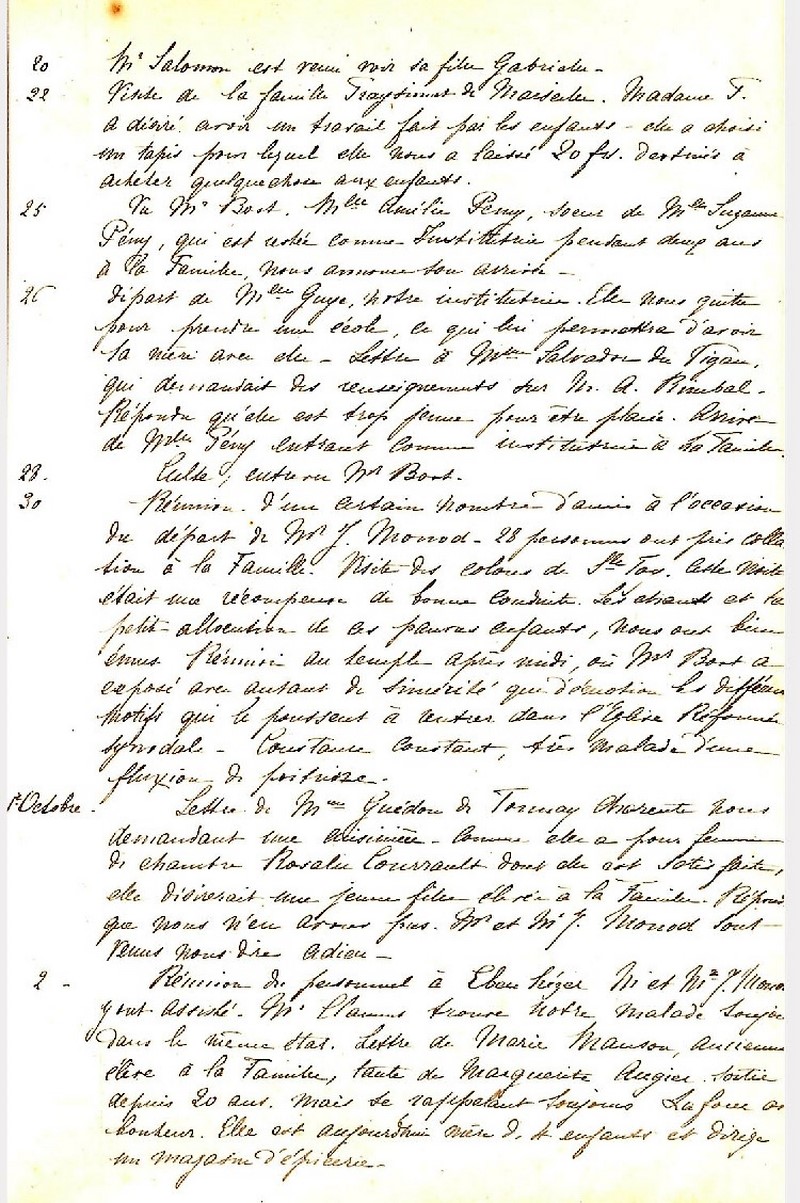 20 Mr Salomon est venu voir sa fille Gabrielle -
22 Visite de la famille de Marseille. Madame T.
a désiré avoir un travail fait par les enfants - elle a choisi
un tapis pour lequel elle nous a laissé 20 frs. destinés à
acheter quelquechose aux enfants.
25 Vu Mr Bost. Melle Amélie Pény, soeur de Melle Suzanne
Pény, qui est restée comme Institutrice pendant deux ans
à la Famille, nous annonce son arrivée -
26 Départ de Melle Guye, notre institutrice. Elle nous quitte
pour prendre une école, ce qui lui permettra d'avoir
sa mère avec elle - Lettre à Salvador du Vigan,
qui demandait des renseignements sur M. A. Rimbal -
Répondu qu'elle est trop jeune pour être placée. Arrivée
de Melle Pény entrant comme institutrice à la Famille.
28. Culte, entrevu Mr Bost.
30 Réunion d'un certain nombre d'amis à l'occasion
du départ de Mr J. Monod - 28 personnes ont pris colla
tion à la Famille. Visite des colons de Ste Foy. Cette visite
était une récompense de bonne conduite. Les chants et la
petite allocution de ces pauvres enfants, nous ont bien
émus Réunion au temple après midi, où Mr Bost a
exposé avec autant de sincérité que d'émotion les différents
motifs qui le poussent à rentrer dans l'Eglise Réformée
synodale - Constance Constant, très malade d'une
fluxion de poitrine.
1r Octobre. Lettre de Mme Guédon de Tonnay Charente nous
demandant une cuisinière - Comme elle a pour femme
de chambre Rosalie Courrault dont elle est satisfaite,
elle désirerait une jeune fille élevée à la Famille. Répondu
que nous n'en avons pas. Mr et Me J. Monod sont
venus nous dire adieu -
2 - Réunion du personnel à Eben Hézer Mr et Me J. Monod
y ont assisté. Mr trouve notre malade toujours
dans le même état. Lettre de Marie Manson, ancienne
élève à la Famille, tante de Marguerite Augier sortie
depuis 20 ans. Mais se rappelant toujours La Force avec
bonheur. Elle est aujourd'hui mère d. 4 enfants et dirige
un magasin d'épicerie -